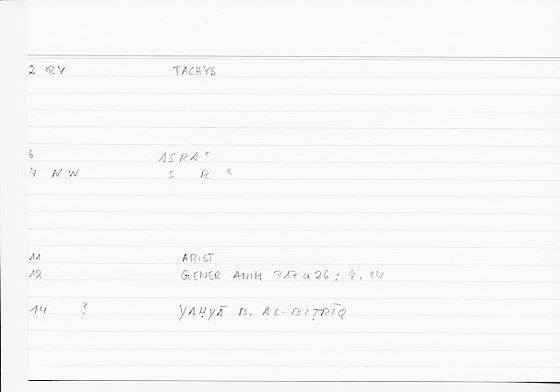 2 RV TACHYS
6 ASRAʿ
7 NW S R ʿ
11 ARIST
12 GENER ANIM 717 a 26 ; 7. 14
14 ? YAḤYĀ B. AL-BIṬRĪQ